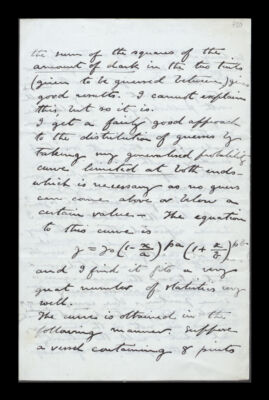 the sum of the squares of the
amount of dark in the two tints
(given to be guessed between) gives
good results. I cannot explain
this but so it is.
I get a fairly good approach
to the distribution of guesses by
taking my generalised probability
curve limited at both ends -
which is necessary as no guess
can come above or below a
certain value -. The equation
to this curve is
y = y₀ (1 - x/a)^pa (1 + x/b)^pb
and I find it fits a very
great number of statistics very
well.
The curve is obtained in the
following manner. Suppose
a vessel containing 8 pints